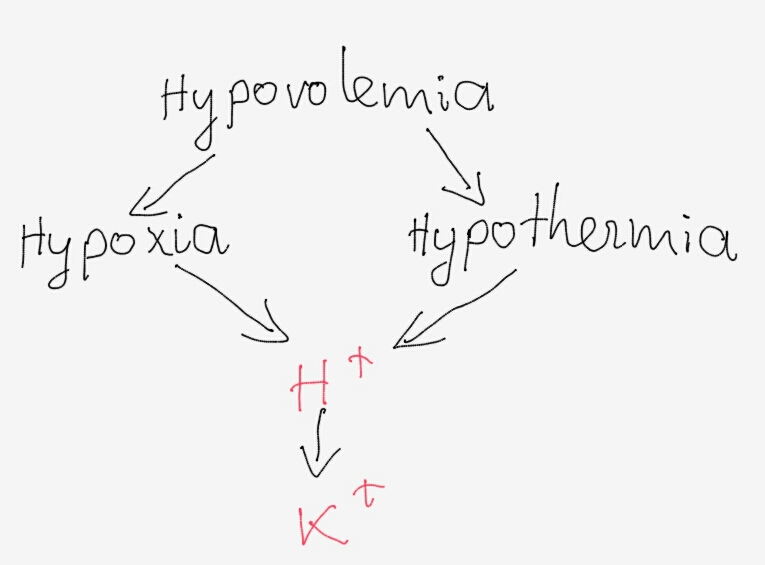 Hypovolemia
Hypoxia Hypothermia
H+
K+